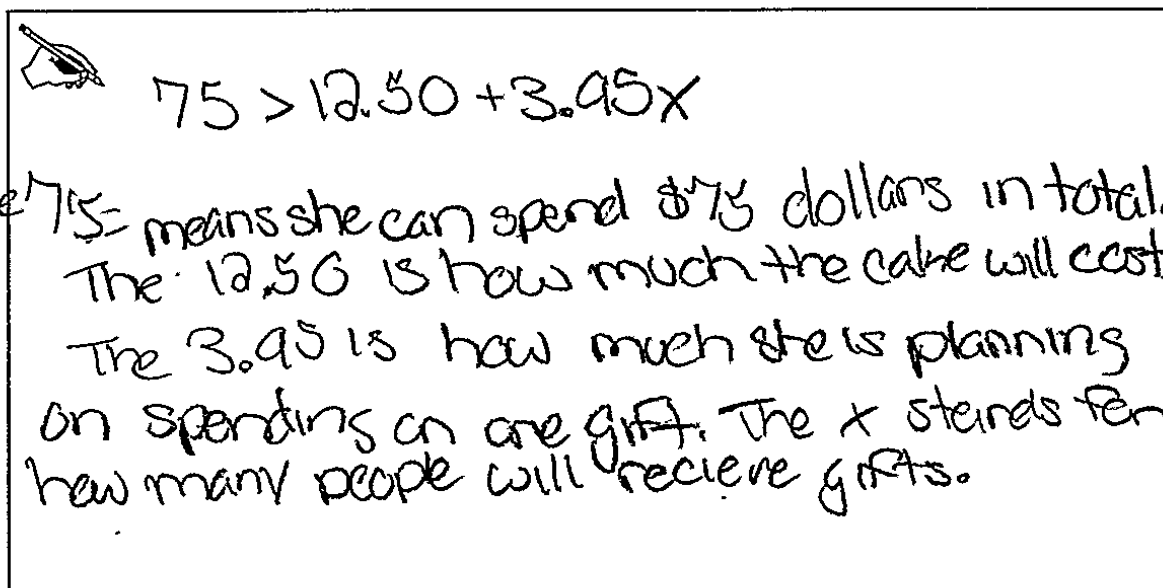 75 > 12.50 + 3.95x
75= means she can spend $75 dollars in total.
The 12.50 is how much the cake will cost
The 3.95 is how much she is planning
on spending on one gift. The x stands for
how many people will recieve gifts.